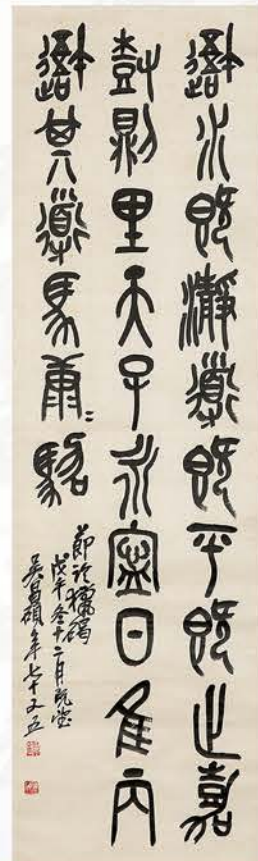 䢔水既瀞導既平既止嘉
尌則里天子永寍日隹丙
䢔其導馬康=駱
節臨獵碣
戊午冬十二月既望
吳昌碩年七十又五